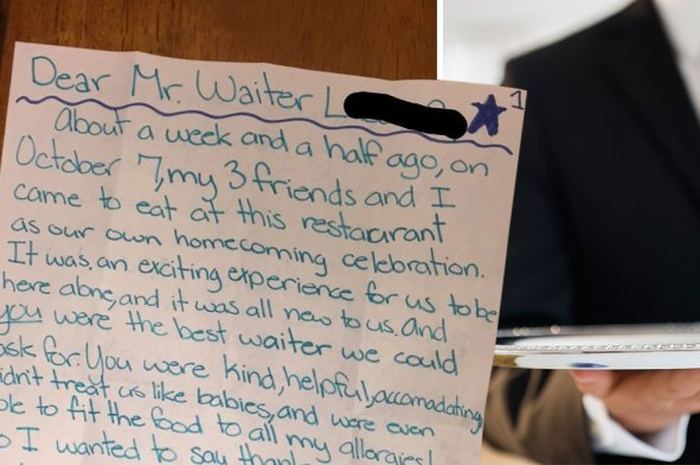 Dear Mr. Waiter L
1
About a week and a half ago, on
October 7, my 3 friends and I
came to eat at this restaurant
as our own homecoming celebration.
It was an exciting experience for us to be
here alone, and it was all new to us. And
you were the best waiter we could
ask for. You were kind, helpful, accomadating,
idn't treat us like babies, and were even
ble to fit the food to all my allergies!
o I wanted to say